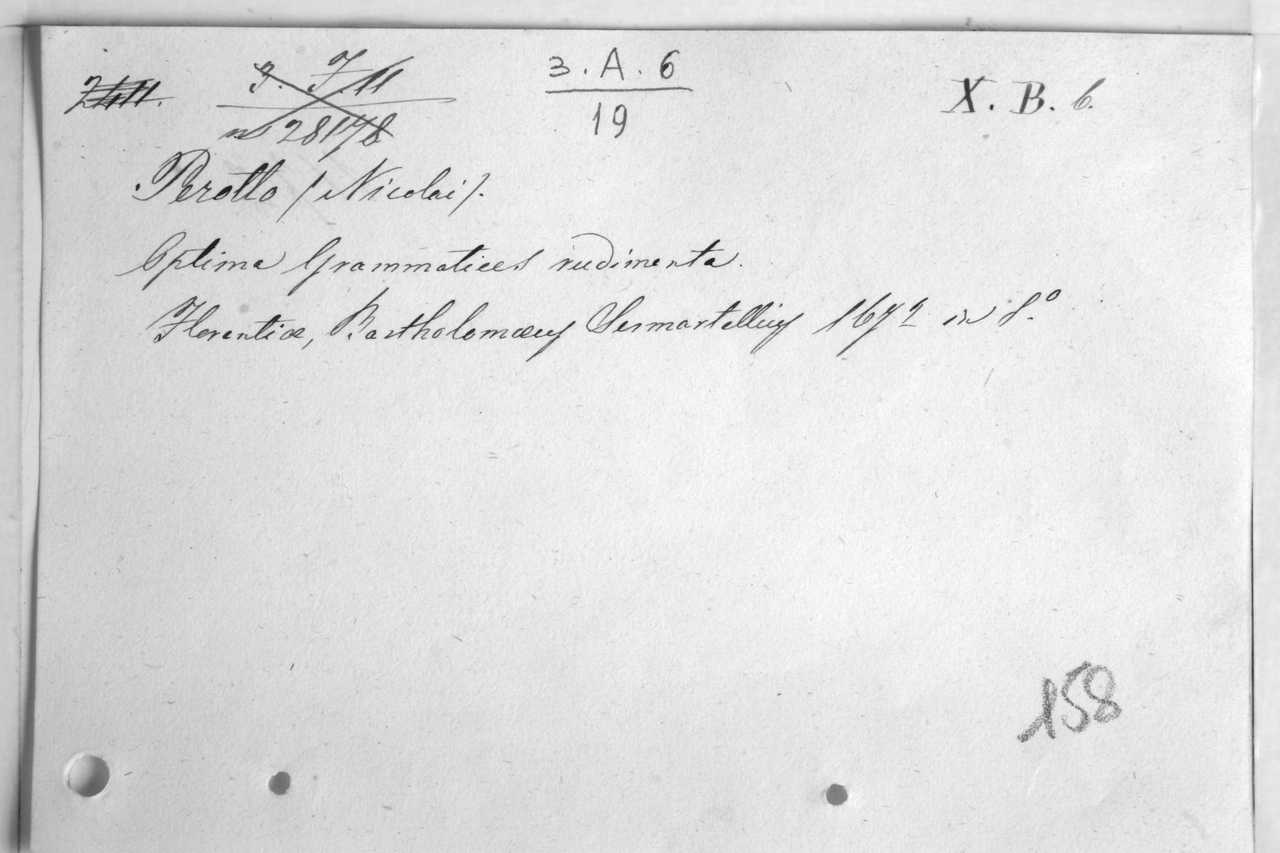 3. A. 6
19
X. B. 6.
n° 28178
Perotto (Nicolai).
Optima Grammatices rudimenta.
Florentiæ, Bartholomæus Sermartellius 1672 in 8.º
158